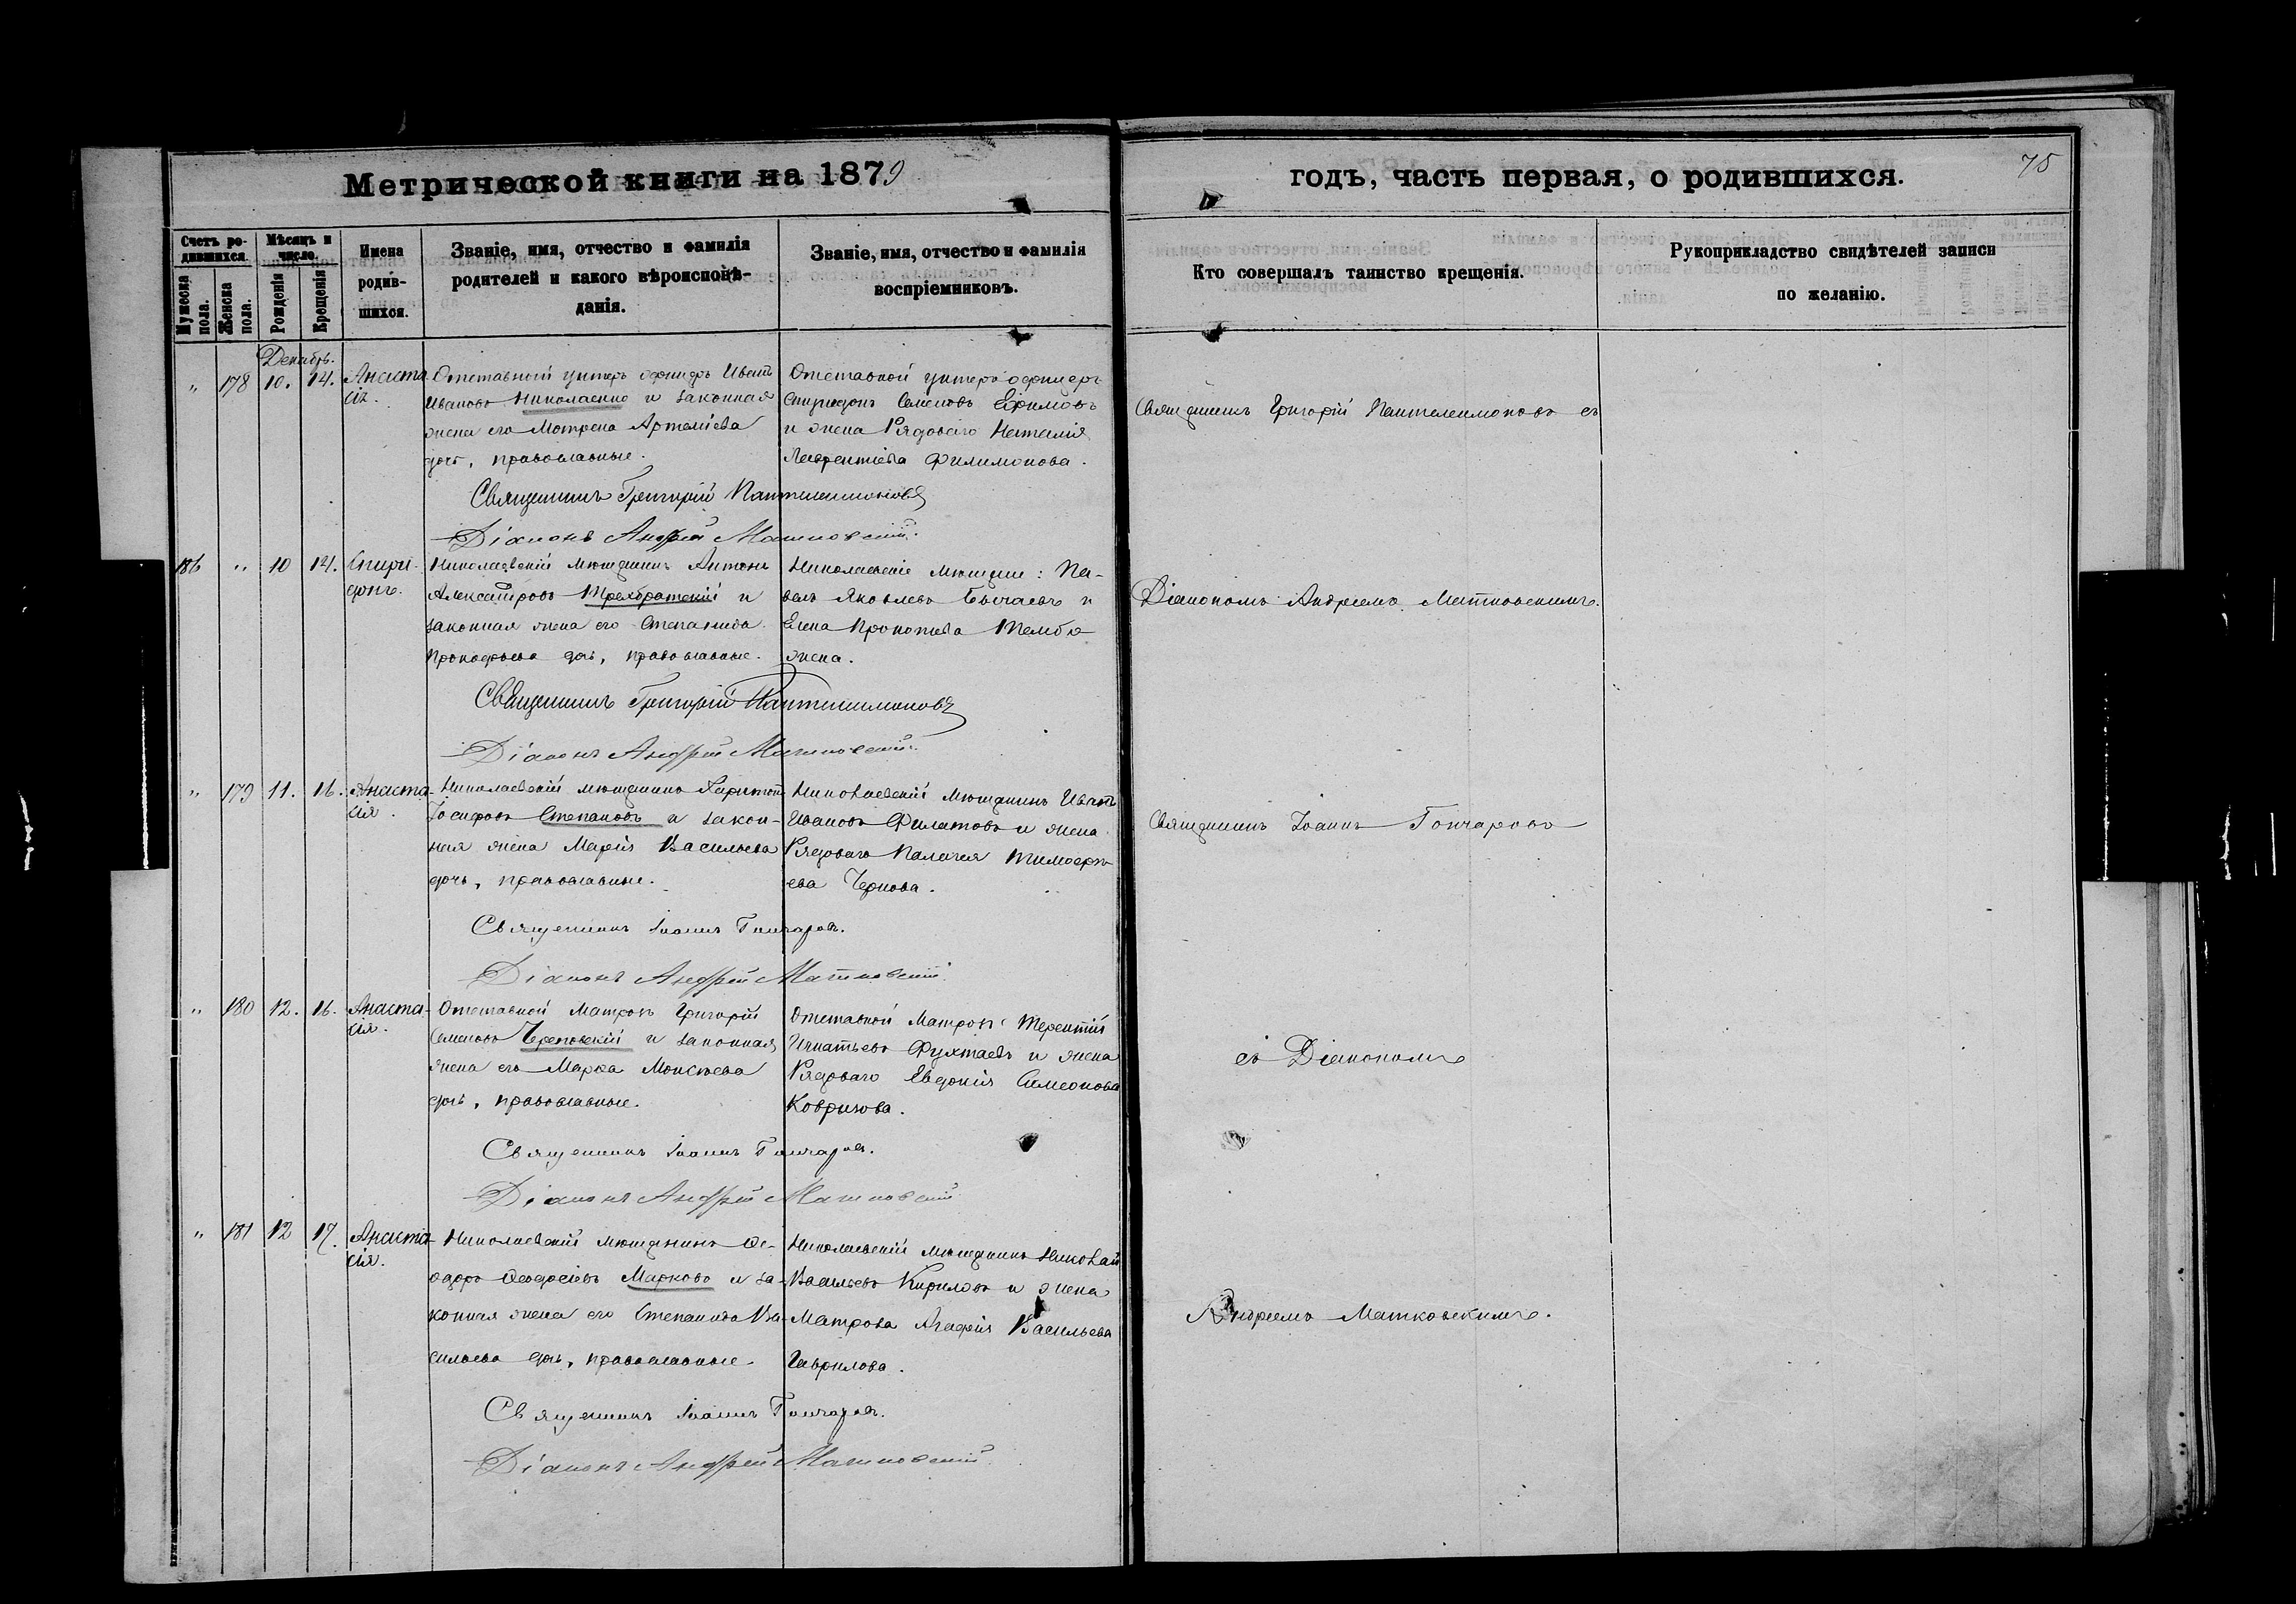 Метрической книги на 1879
годъ, часть первая, о родившихся.
75
Счетъ ро-
дившихся.
Мужеска
пола.
Женска
пола.
Мѣсяцъ и
число.
Рожденія
Крещенія
Имена
родив-
шихся.
Званіе, имя, отчество и фамилія
родителей и какого вѣроисповѣ-
данія.
Званіе, имя, отчество и фамилія
воспріемниковъ.
Кто совершалъ таинство крещенія.
Рукоприкладство свидѣтелей записи
по желанію.
Декабрь.
" 178 10. 14. Анаста
сія.
Отставной унтеръ офицеръ Иванъ
Ивановъ Николаенко и законная
жена его Мотрена Артеміева
дочь, православные.
Отставной унтеръ офицеръ
Спиридонъ Семеновъ Ефимовъ
и жена Рядоваго Наталія
Лаврентіева Филимонова.
Священникъ Григорій Пантелеимоновъ съ
Священникъ Григорій Пантелеимоновъ
Діаконъ Андрей Матковскій.
186 " 10 14. Спири-
донъ.
Николаевскій мѣщанинъ Антонъ
Александровъ Трехбратскій и
законная жена его Степанида
Прокофьева дочь, православные.
Николаевскіе мѣщане: Па-
велъ Яковлевъ Бычаевъ и
Елена Прокопіева
жена.
Діакономъ Андреемъ Матковскимъ.
Священникъ Григорій Пантелеимоновъ
Діаконъ Андрей Матковскій.
" 179 11. 16. Анаста-
сія.
Николаевскій мѣщанинъ Харитонъ
Іосифовъ Степановъ и закон-
ная жена Марія Васильева
дочь, православные.
Николаевскій мѣщанинъ Иванъ
Ивановъ Филатовъ и жена
Рядоваго Пелагея Тимофе-
ева Чернова.
Священникъ Іоаннъ Гончаровъ
Священникъ Іоаннъ Гончаровъ.
Діаконъ Андрей Матковскій.
" 180 12. 16. Анаста-
сія.
Отставной Матросъ Григорій
Семеновъ Череповскій и законная
жена его Марѳа Моисеева
дочь, православные.
Отставной Матросъ Терентій
Игнатьевъ Фухтаевъ и жена
Рядоваго Евдокія Симеонова
Коврижова.
съ Діакономъ
Священникъ Іоаннъ Гончаровъ.
Діаконъ Андрей Матковскій
" 181 12 17. Анаста-
сія.
Николаевскій мѣщанинъ Ѳе-
одоръ Ѳеодосіевъ Марковъ и за-
конная жена его Степанида Ва-
сильева дочь, православные.
Николаевскій мѣщанинъ Николай
Васильевъ Кириловъ и жена
Матроса Агафія Васильева
Гаврилова.
Андреемъ Матковскимъ.
Священникъ Іоаннъ Гончаровъ.
Діаконъ Андрей Матковскій